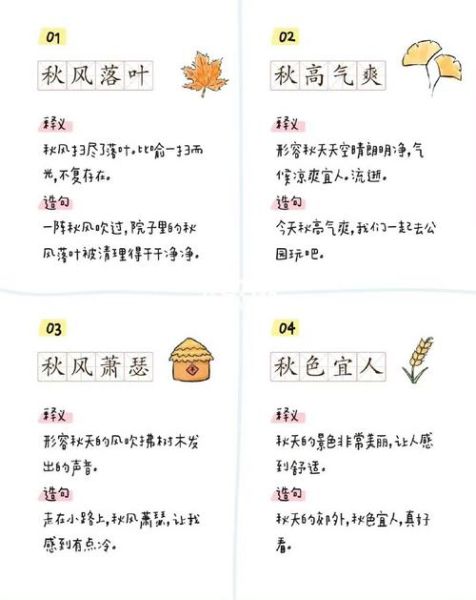 01
秋风落叶
释义
秋风扫尽了落叶。比喻一扫而
光,不复存在。
造句
一阵秋风吹过,院子里的秋
风落叶被清理得干干净净。
02
秋高气爽
释义
形容秋天天空晴朗明净,气
候凉爽宜人。流逝。
造句
今天秋高气爽,我们一起去公
园玩吧。
03
秋风萧瑟
释义
形容秋天的风吹拂树木发
出的声音。
造句
走在小路上,秋风萧瑟,让我
感到有点冷。
04
秋色宜人
释义
秋天的景色非常美丽,让人感
到舒适。
造句
秋天的郊外,秋色宜人,真好
看。